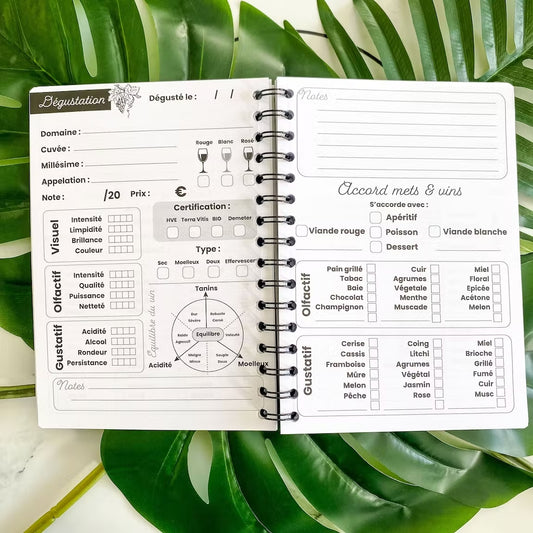 Dégustation
Dégusté le : / /
Domaine :
Cuvée :
Millésime :
Appelation :
Rouge Blanc Rosé
Note : /20 Prix : €
Certification :
HVE Terra Vitis BIO Demeter
Type :
Sec Moelleux Doux Effervescent
Visuel
Intensité
Limpidité
Brillance
Couleur
Olfactif
Intensité
Qualité
Puissance
Netteté
Gustatif
Acidité
Alcool
Rondeur
Persistance
Equilibre du vin
Tanins
Dur
Sévère
Robuste
Corsé
Raide
Agressif
Equilibre
Velouté
Maigre
Mince
Souple
Doux
Acidité
Moelleux
Notes
Notes
Accord mets & vins
S'accorde avec :
Apéritif
Viande rouge Poisson Viande blanche
Dessert
Olfactif
Pain grillé Cuir Miel
Tabac Agrumes Floral
Baie Végétale Epicée
Chocolat Menthe Acétone
Champignon Muscade Melon
Gustatif
Cerise Coing Miel
Cassis Litchi Brioche
Framboise Agrumes Grillé
Mûre Végétal Fumé
Melon Jasmin Cuir
Pêche Rose Musc